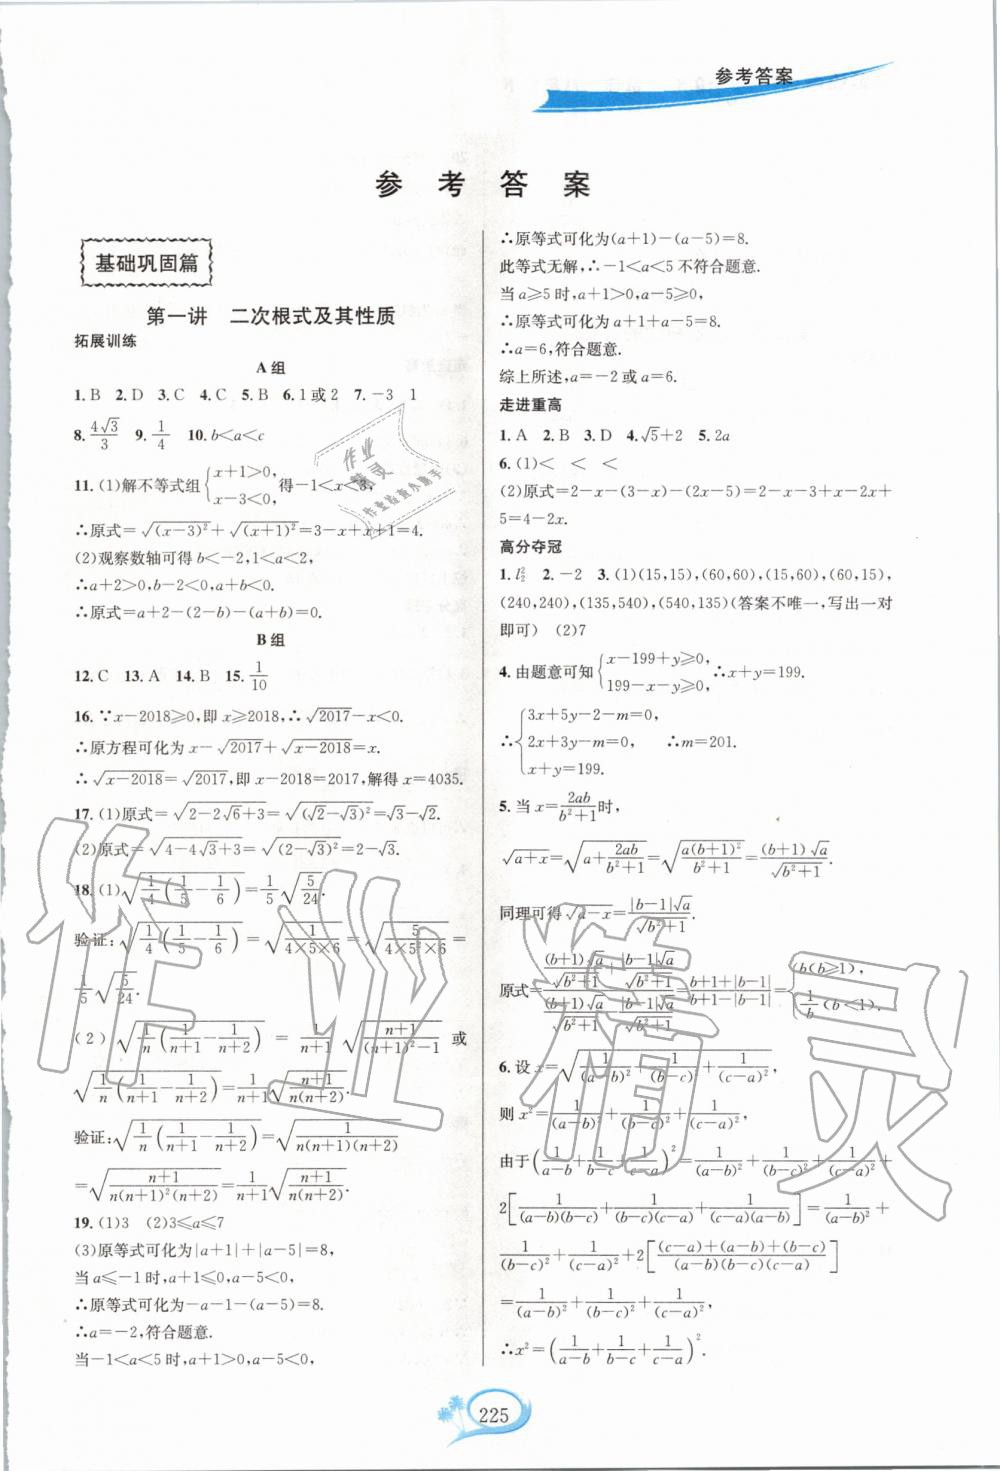 参考答案
参 考 答 案
基础巩固篇
第一讲 二次根式及其性质
拓展训练
A 组
1. B 2. D 3. C 4. C 5. B 6. 1 或 2 7. －3 1
8. 4√3/3 9. 1/4 10. b＜a＜c
11. (1)解不等式组{x＋1＞0, x－3＜0, 得－1＜x＜3,
∴原式＝√(x－3)²＋√(x＋1)²＝3－x＋x＋1＝4.
(2)观察数轴可得 b＜－2,1＜a＜2,
∴a＋2＞0,b－2＜0,a＋b＜0.
∴原式＝a＋2－(2－b)－(a＋b)＝0.
B 组
12. C 13. A 14. B 15. 1/10
16. ∵x－2018⩾0,即 x⩾2018,∴√2017－x＜0.
∴原方程可化为 x－√2017＋√(x－2018)＝x.
∴√(x－2018)＝√2017,即 x－2018＝2017,解得 x＝4035.
17. (1)原式＝√(2－2√6＋3)＝√((√2－√3)²)＝√3－√2.
(2)原式＝√(4－4√3＋3)＝√((2－√3)²)＝2－√3.
18. (1)√(1/4(1/5－1/6))＝1/5√(5/24).
验证:√(1/4(1/5－1/6))＝√(1/(4×5×6))＝√(5/(4×5²×6))＝
1/5√(5/24).
(2)√(1/n(1/(n＋1)－1/(n＋2)))＝1/(n＋1)√((n＋1)/((n＋1)²－1)) 或
√(1/n(1/(n＋1)－1/(n＋2)))＝1/(n＋1)√((n＋1)/(n(n＋2))).
验证:√(1/n(1/(n＋1)－1/(n＋2)))＝√(1/(n(n＋1)(n＋2)))
＝√((n＋1)/(n(n＋1)²(n＋2))).
19. (1)3 (2)3⩽a⩽7
(3)原等式可化为|a＋1|＋|a－5|＝8,
当 a⩽－1 时,a＋1⩽0,a－5＜0,
∴原等式可化为－a－1－(a－5)＝8.
∴a＝－2,符合题意.
当－1＜a＜5 时,a＋1＞0,a－5＜0,
∴原等式可化为(a＋1)－(a－5)＝8.
此等式无解,∴－1＜a＜5 不符合题意.
当 a⩾5 时,a＋1＞0,a－5⩾0,
∴原等式可化为 a＋1＋a－5＝8.
∴a＝6,符合题意.
综上所述,a＝－2 或 a＝6.
走进重高
1. A 2. B 3. D 4. √5＋2 5. 2a
6. (1)＜ ＜ ＜
(2)原式＝2－x－(3－x)－(2x－5)＝2－x－3＋x－2x＋
5＝4－2x.
高分夺冠
1. l₂² 2. －2 3. (1)(15,15),(60,60),(15,60),(60,15),
(240,240),(135,540),(540,135)(答案不唯一,写出一对
即可) (2)7
4. 由题意可知{x－199＋y⩾0, 199－x－y⩾0, ∴x＋y＝199.
∴{3x＋5y－2－m＝0, 2x＋3y－m＝0, x＋y＝199. ∴m＝201.
5. 当 x＝2ab/(b²＋1)时,
√(a＋x)＝√(a＋2ab/(b²＋1))＝√(a(b＋1)²/(b²＋1))＝(b＋1)√a/√(b²＋1).
同理可得√(a－x)＝|b－1|√a/√(b²＋1).
原式＝((b＋1)√a/√(b²＋1)＋|b－1|√a/√(b²＋1))/((b＋1)√a/√(b²＋1)－|b－1|√a/√(b²＋1))＝(b＋1＋|b－1|)/(b＋1－|b－1|)＝{b(b⩾1), 1/b(b＜1).
6. 设 x＝√(1/(a－b)²＋1/(b－c)²＋1/(c－a)²),
则 x²＝1/(a－b)²＋1/(b－c)²＋1/(c－a)²,
由于(1/(a－b)＋1/(b－c)＋1/(c－a))²＝1/(a－b)²＋1/(b－c)²＋1/(c－a)²＋
2[1/((a－b)(b－c))＋1/((b－c)(c－a))＋1/((c－a)(a－b))]＝1/(a－b)²＋
1/(b－c)²＋1/(c－a)²＋2[((c－a)＋(a－b)＋(b－c))/((a－b)(b－c)(c－a))]
＝1/(a－b)²＋1/(b－c)²＋1/(c－a)²,
∴x²＝(1/(a－b)＋1/(b－c)＋1/(c－a))².
225
作业精灵
作业
精灵
作业检查小助手